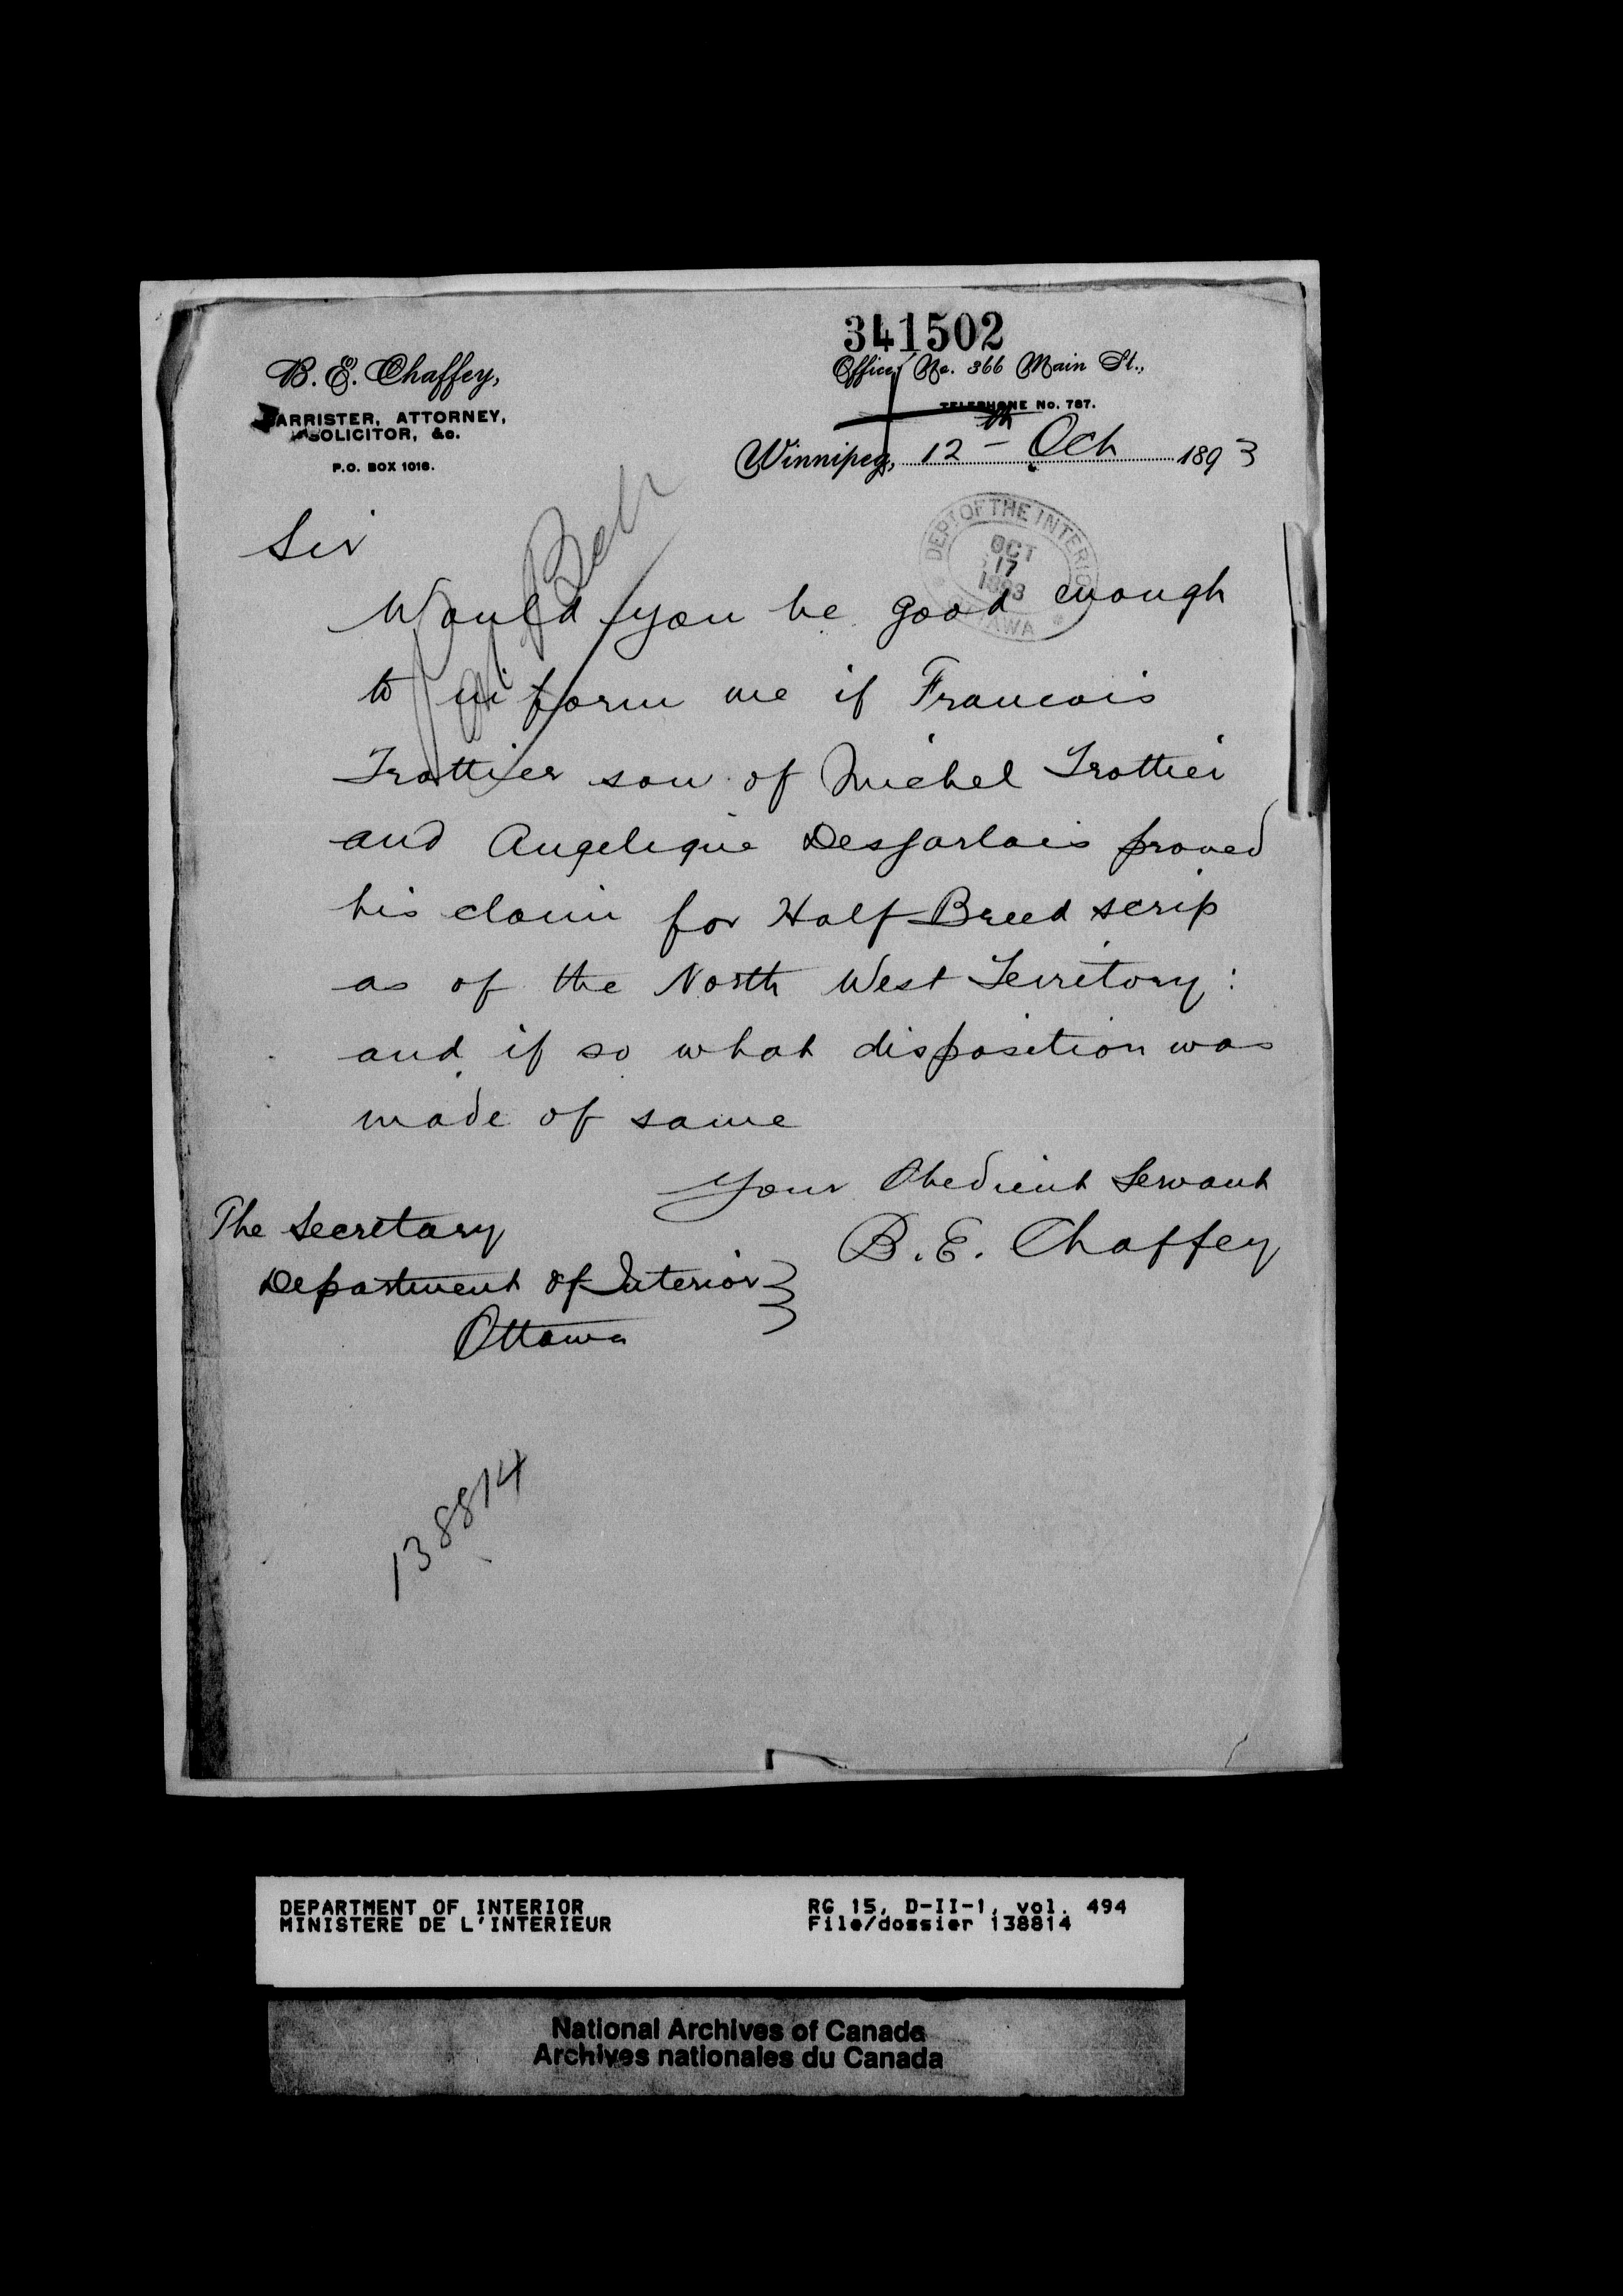 341502
B. E. Chaffey,
BARRISTER, ATTORNEY,
SOLICITOR, &c.
P.O. BOX 1016.
Office, No. 366 Main St.,
TELEPHONE No. 787.
Winnipeg, 12th Oct 1893
DEPT OF THE INTERIOR
OCT
17
1893
OTTAWA
Sir
Would you be good enough
to inform me if Francois
Trottier son of Michel Trottier
and Angelique Desjarlais proved
his claim for Half Breed scrip
as of the North West Territory :
and if so what disposition was
made of same
Your Obedient Servant
B. E. Chaffey
The Secretary
Department of Interior
Ottawa
138814
DEPARTMENT OF INTERIOR
MINISTERE DE L'INTERIEUR
RG 15, D-II-1, vol. 494
File/dossier 138814
National Archives of Canada
Archives nationales du Canada